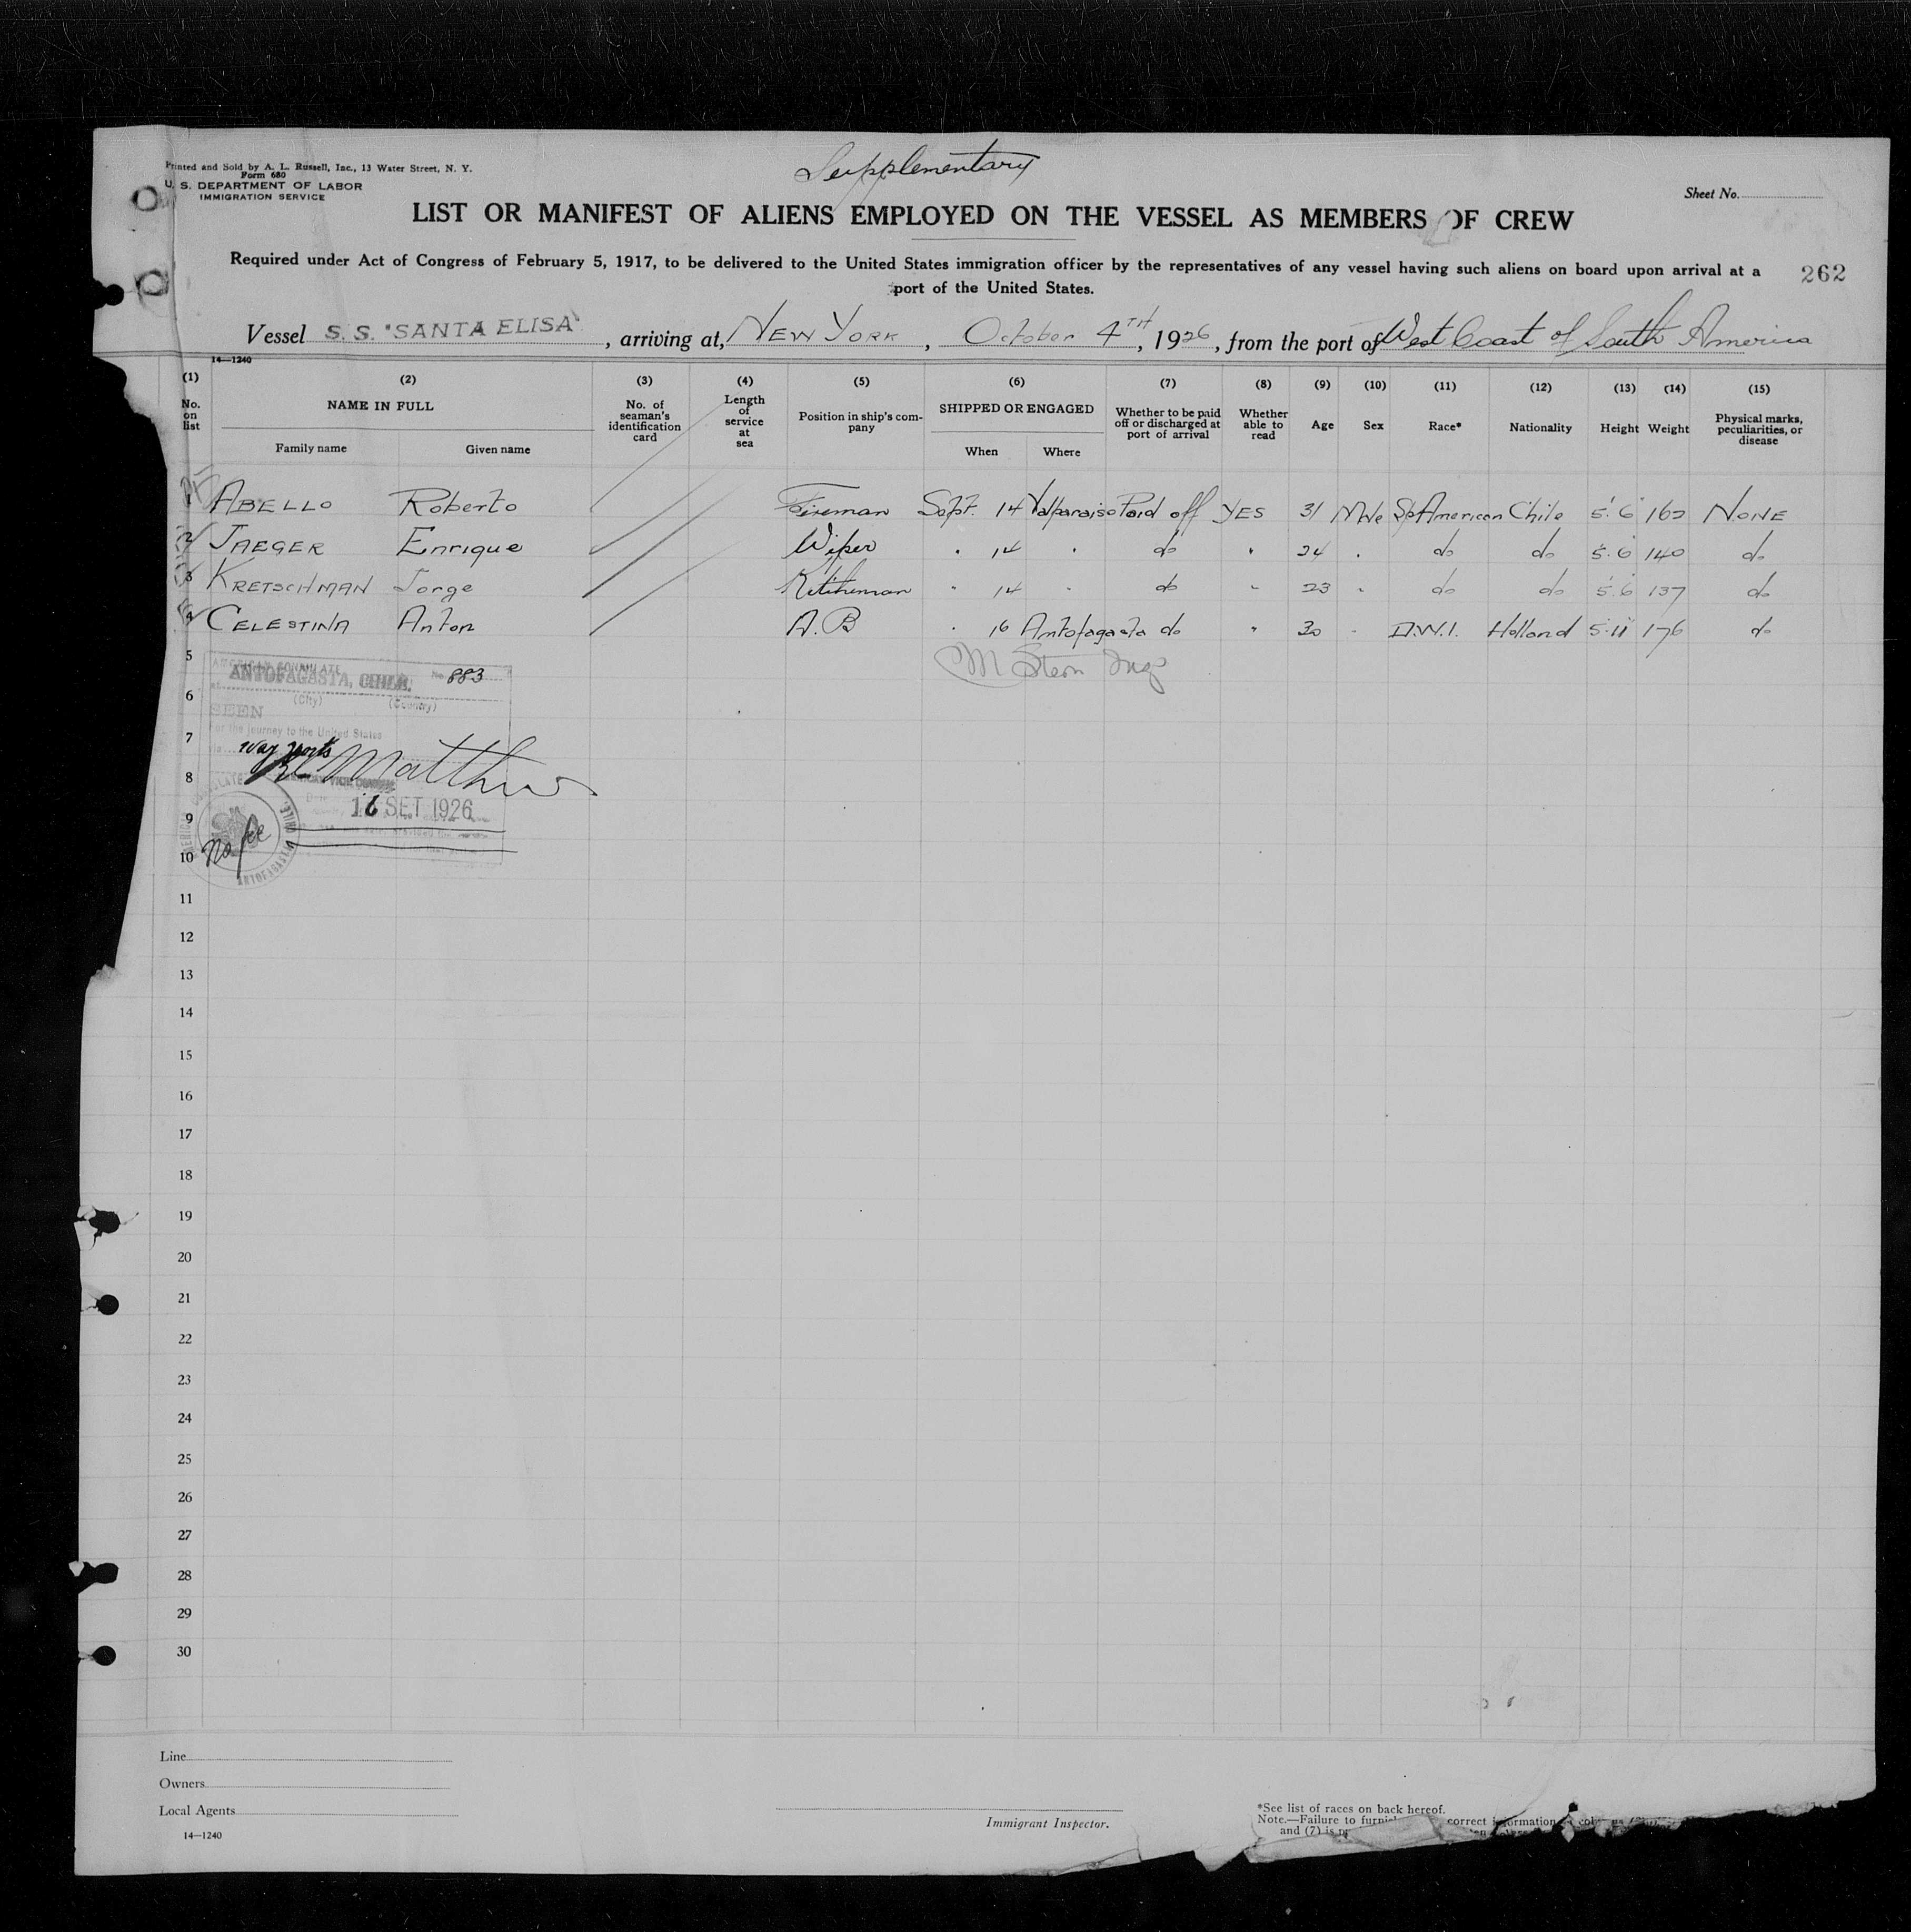 Supplementary
Printed and Sold by A. L. Russell, Inc., 13 Water Street, N. Y.
Form 680
U. S. DEPARTMENT OF LABOR
IMMIGRATION SERVICE
Sheet No.
LIST OR MANIFEST OF ALIENS EMPLOYED ON THE VESSEL AS MEMBERS OF CREW
Required under Act of Congress of February 5, 1917, to be delivered to the United States immigration officer by the representatives of any vessel having such aliens on board upon arrival at a
port of the United States.
262
Vessel S.S. "SANTA ELISA", arriving at, NEW YORK, October 4TH, 1926, from the port of West Coast of South America
14—1240
(1) (2) (3) (4) (5) (6) (7) (8) (9) (10) (11) (12) (13) (14) (15)
No. on list NAME IN FULL No. of seaman's identification card Length of service at sea Position in ship's company SHIPPED OR ENGAGED Whether to be paid off or discharged at port of arrival Whether able to read Age Sex Race* Nationality Height Weight Physical marks, peculiarities, or disease
Family name Given name When Where
1 ABELLO Roberto Fireman Sept. 14 Valparaiso Paid off YES 31 Male Sp American Chile 5'6" 160 NONE
2 JAEGER Enrique Wiper " 14 " do " 24 " do do 5'6" 140 do
3 KRETSCHMAN Jorge Kitchenman " 14 " do " 23 " do do 5'6" 137 do
4 CELESTINA Anton A.B " 16 Antofagasta do " 30 " D.W.I. Holland 5'11" 176 do
5
M Stern Insp
AMERICAN CONSULATE
ANTOFAGASTA, CHILE. No. 883
(City) (Country)
6
SEEN
For the journey to the United States
7
via way ports
Matthews
8
AMERICAN VICE CONSUL
16 SET 1926
9
no fee
10
11
12
13
14
15
16
17
18
19
20
21
22
23
24
25
26
27
28
29
30
Line
Owners
Local Agents
14—1240
Immigrant Inspector.
*See list of races on back hereof.
Note.—Failure to furnish correct information
and (7) is